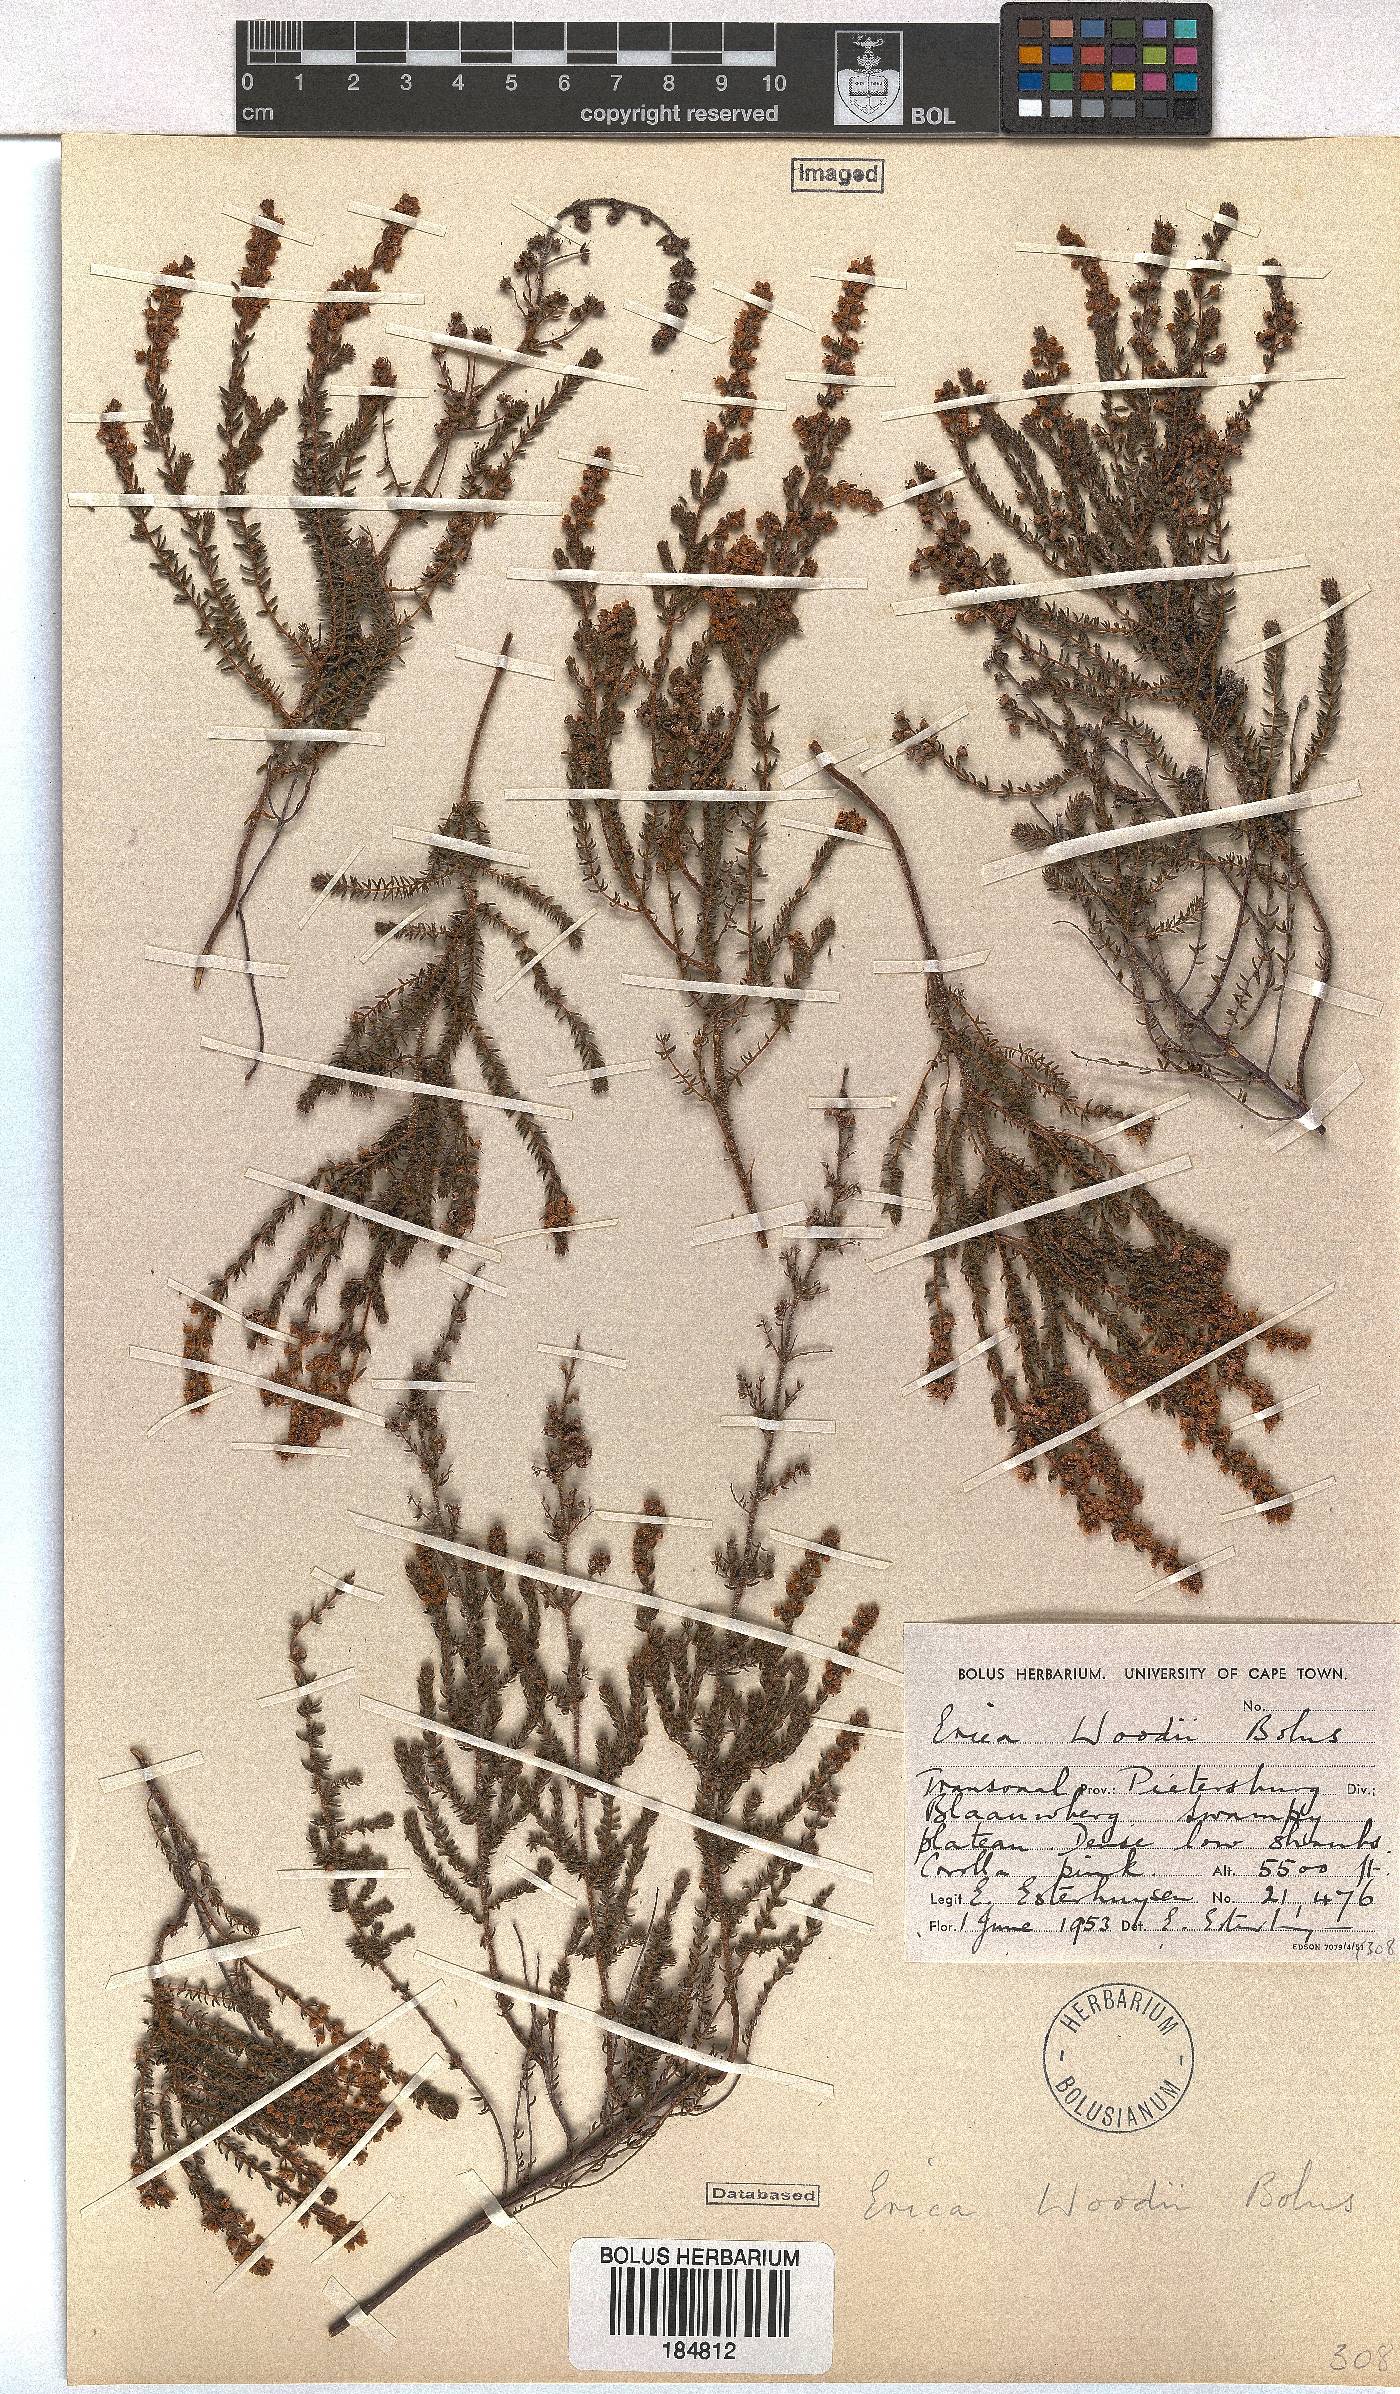 0 1 2 3 4 5 6 7 8 9 10
cm copyright reserved BOL
Imaged
BOLUS HERBARIUM. UNIVERSITY OF CAPE TOWN.
No.
Erica Woodii Bolus
Transvaal Prov.: Pietersburg Div.:
Blaauwberg swampy
plateau. Dense low shrubs.
Corolla pink. Alt. 5500 ft
Legit E. Esterhuysen No. 21,476
Flor. 1 June 1953 Det. E. Esterhuysen
EDSON 7079/4/51 308
HERBARIUM
BOLUSIANUM
Databased
Erica Woodii Bolus
BOLUS HERBARIUM
184812
308